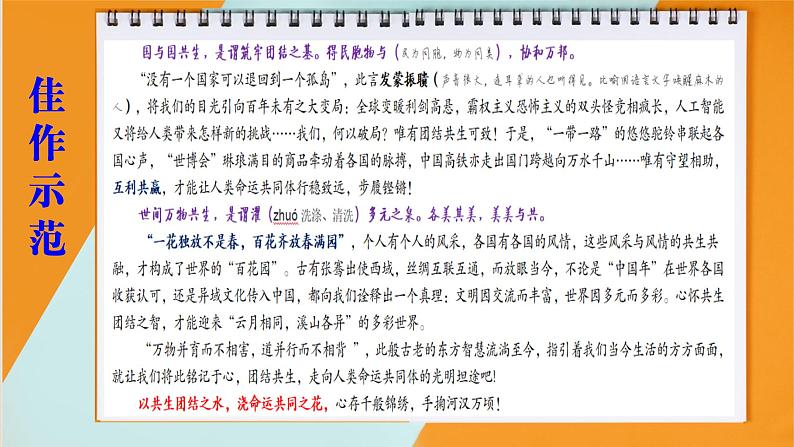 佳作示范
国与国共生，是谓筑牢团结之基。得民胞物与（民为同胞，物为同类），协和万邦。
“没有一个国家可以退回到一个孤岛”，此言发蒙振聩（声音很大，连耳聋的人也听得见。比喻用语言文字唤醒麻木的
人），将我们的目光引向百年未有之大变局：全球变暖利剑高悬，霸权主义恐怖主义的双头怪竞相疯长，人工智能
又将给人类带来怎样新的挑战……我们，何以破局？唯有团结共生可致！于是，“一带一路”的悠悠驼铃串联起各
国心声，“世博会”琳琅满目的商品牵动着各国的脉搏，中国高铁亦走出国门跨越向万水千山……唯有守望相助，
互利共赢，才能让人类命运共同体行稳致远，步履铿锵！
世间万物共生，是谓濯（zhuó 洗涤、清洗）多元之泉。各美其美，美美与共。
“一花独放不是春，百花齐放春满园”，个人有个人的风采，各国有各国的风情，这些风采与风情的共生共
融，才构成了世界的“百花园”。古有张骞出使西域，丝绸互联互通，而放眼当今，不论是“中国年”在世界各国
收获认可，还是异域文化传入中国，都向我们诠释出一个真理：文明因交流而丰富，世界因多元而多彩。心怀共生
团结之智，才能迎来“云月相同，溪山各异”的多彩世界。
“万物并育而不相害，道并行而不相背 ”，此般古老的东方智慧流淌至今，指引着我们当今生活的方方面面，
就让我们将此铭记于心，团结共生，走向人类命运共同体的光明坦途吧!
以共生团结之水，浇命运共同之花，心存千般锦绣，手掬河汉万顷！